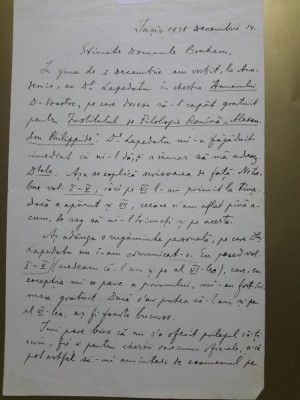 Iași, 1938 Decembrie 14.
Stimate Domnule Bonham,
În ziua de 2 Decembrie am vorbit, la Aca-
demie, cu Dl Lapedatu în chestia
D-Voastre, pe care doream să-l capăt gratuit
pentru Institutul de Filologie Română „Alexan-
dru Philippide". Dl Lapedatu mi-a făgăduit
imediat că mi-l dă, și a rămas să mă adresez
Dtale. Așa se explică scrisoarea de față.
vol. I-V, căci pe VI l-am primit la timp.
Dacă a apărut și VII, ceea ce n'am aflat pînă a-
cum, te rog să mi-l trimeți și pe acesta.
Aș adăuga o rugăminte personală, pe care Dlui
Lapedatu nu i-am comunicat-o. Eu posed vol.
I-V (credeam că-l am și pe al VI-lea), care, cu
excepția mi se pare a primului, mi-au fost tri-
mese gratuit. Dacă s'ar putea să-l am și pe
al VI-lea, aș fi foarte bucuros.
Îmi pare bine că mi s'a oferit prilejul să-ți
scriu, fie și pentru chestii oarecum oficiale, căci
pot astfel să-mi amintesc de examenul pe